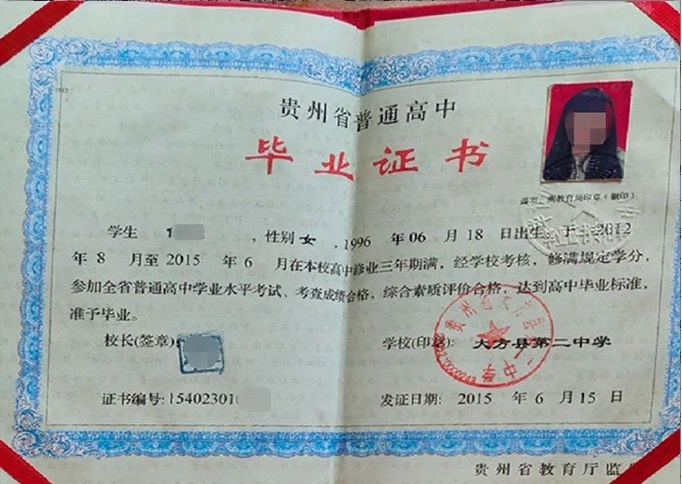 贵州省普通高中
毕业证书
盖市、州教育局印章（钢印）
学生 1 , 性别 女 , 1996 年 06 月 18 日出生, 于 2012
年 8 月至 2015 年 6 月在本校高中修业三年期满, 经学校考核, 修满规定学分,
参加全省普通高中学业水平考试、考查成绩合格, 综合素质评价合格, 达到高中毕业标准,
准予毕业。
校长(签章)
学校(印章): 大方县第二中学
证书编号: 15402301
发证日期: 2015 年 6 月 15 日
贵州省教育厅监